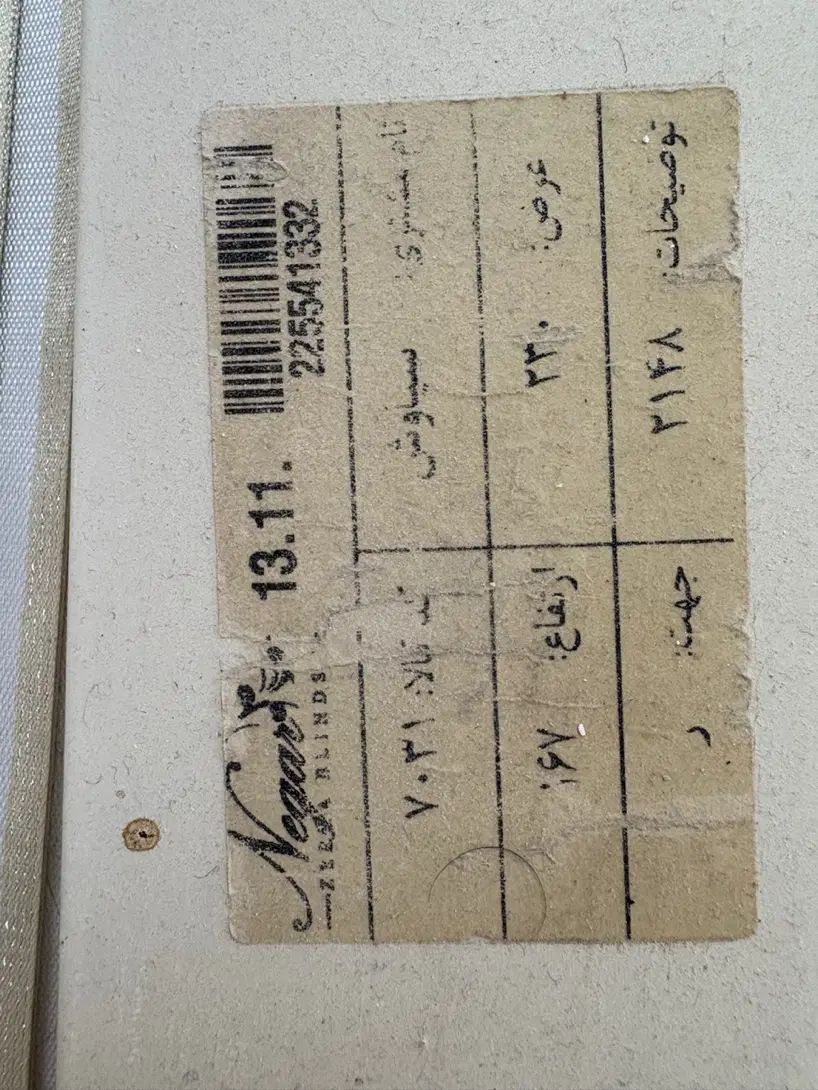 Negar
ZEBRA BLINDS
13.11.
225541332
نام مشتری: سیاوش
کد کالا: ۷۰۳۱
عرض: ۲۳۰
ارتفاع: ۱۶۷
توضیحات: ۲۱۴۸
جهت: ر